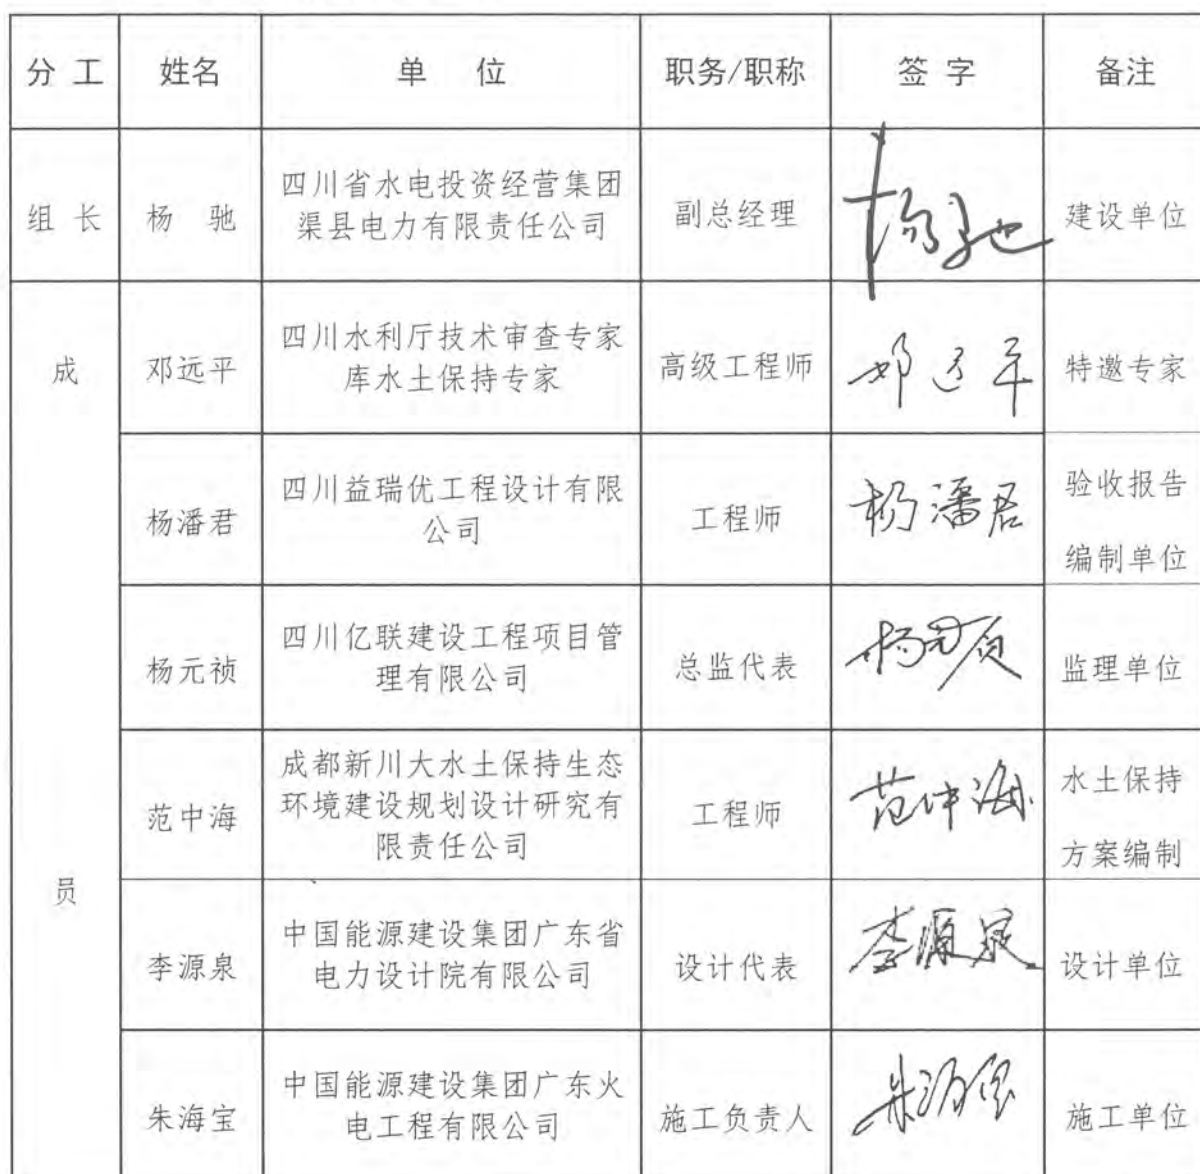 分 工 姓名 单 位 职务/职称 签 字 备注
组 长 杨 驰 四川省水电投资经营集团
渠县电力有限责任公司 副总经理 杨驰 建设单位
成 邓远平 四川水利厅技术审查专家
库水土保持专家 高级工程师 邓远平 特邀专家
杨潘君 四川益瑞优工程设计有限
公司 工程师 杨潘君 验收报告
编制单位
杨元祯 四川亿联建设工程项目管
理有限公司 总监代表 杨元贞 监理单位
范中海 成都新川大水土保持生态
环境建设规划设计研究有
限责任公司 工程师 范中海 水土保持
方案编制
员
李源泉 中国能源建设集团广东省
电力设计院有限公司 设计代表 李源泉 设计单位
朱海宝 中国能源建设集团广东火
电工程有限公司 施工负责人 朱海宝 施工单位